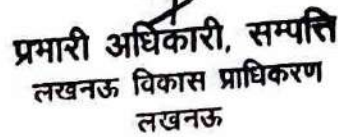 प्रभारी अधिकारी, सम्पत्ति
लखनऊ विकास प्राधिकरण
लखनऊ